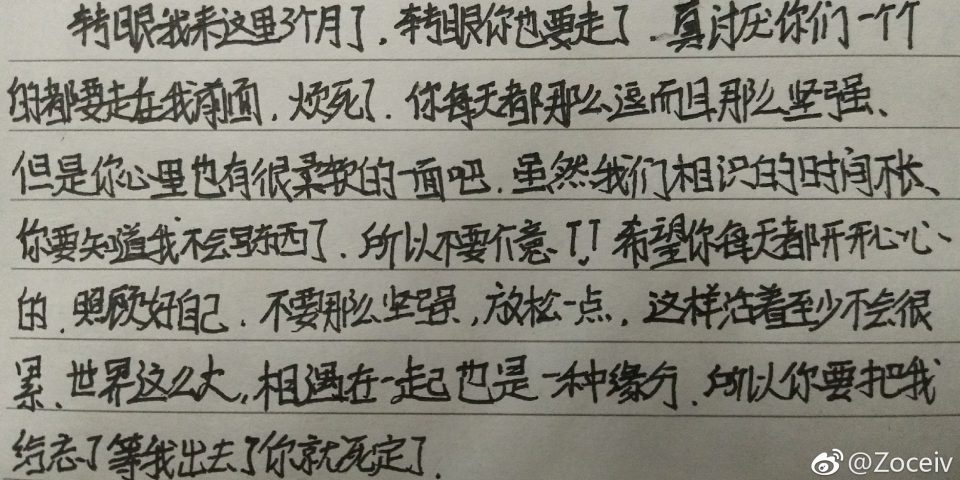 转眼我来这里3个月了，转眼你也要走了．真讨厌你们一个个
的都要走在我前面，烦死了．你每天都那么逗而且那么坚强、
但是你心里也有很柔软的一面吧．虽然我们相识的时间不长、
你要知道我不会写东西了．所以不要介意、!! 希望你每天都开开心心、
的．照顾好自己．不要那么坚强，放松一点，这样活着至少不会很
累、世界这么大，相遇在一起也是一种缘分．所以你要把我
给忘了等我出去了你就死定了．
@Zoceiv